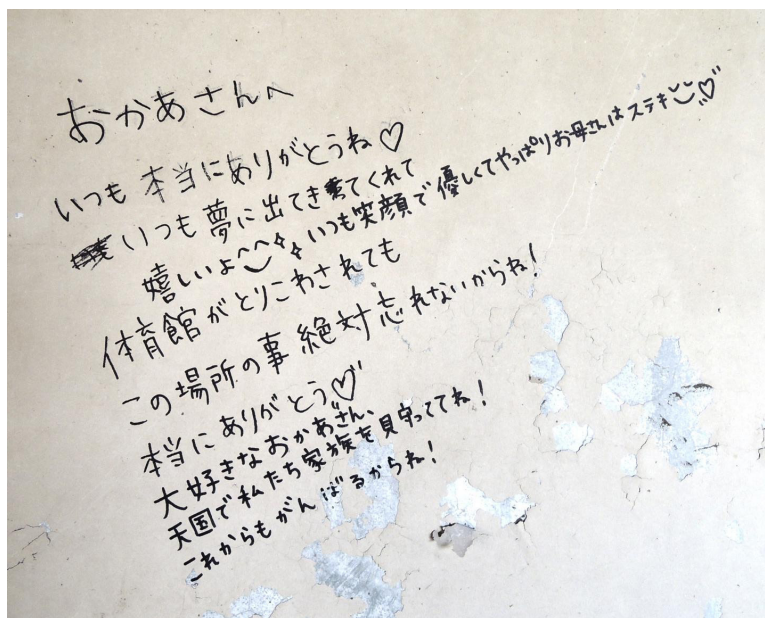 おかあさんへ
いつも本当にありがとうね♡
いつも夢に出てきてくれて
嬉しいよ^^いつも笑顔で優しくてやっぱりお母さんはステキ♡
体育館がとりこわされても
この場所の事絶対忘れないからね！
本当にありがとう♡
大好きなおかあさん、
天国で私たち家族を見守っててね！
これからもがんばるからね！